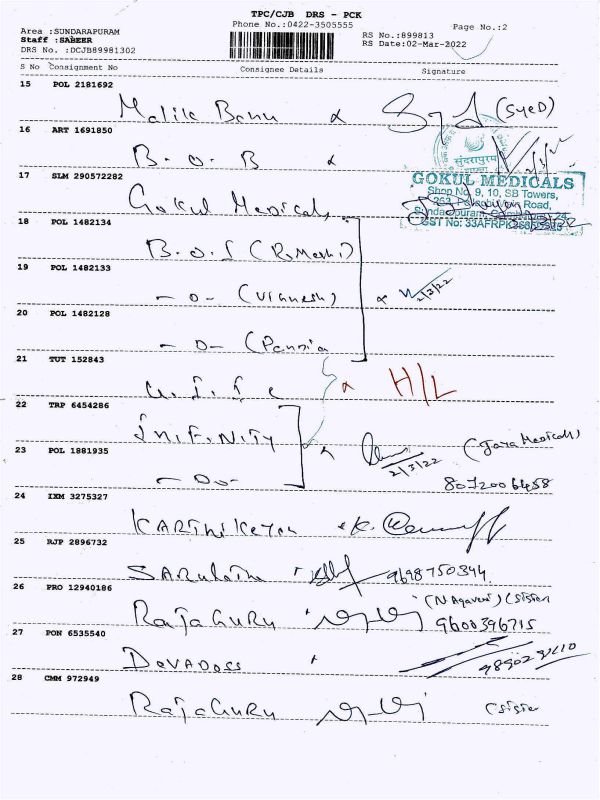 TPC/CJB DRS - PCK
Phone No.:0422-3505555
Page No.:2
Area :SUNDARAPURAM
Staff :SABEER
DRS No. :DCJB89981302
RS No.:899813
RS Date:02-Mar-2022
S No Consignment No Consignee Details Signature
15 POL 2181692
Malik Banu (Syed)
16 ART 1691850
B.O.B
17 SLM 290572282
Gokul Medicals
GOKUL MEDICALS
Shop No 9, 10, SB Towers,
Road,
18 POL 1482134
B.O.I
19 POL 1482133
- D - (Vignesh) 2/3/22
20 POL 1482128
- D -
21 TUT 152843
H/L
22 TRP 6454286
INFINITY
2/3/22 (Jaya Medicals)
23 POL 1881935
- Do -
24 IXM 3275327
KARTHIKEYAN
25 RJP 2896732
9698750344
26 PRO 12940186
RAJAGURU (Nagaveni) (Sister
9600396715
27 PON 6535540
DEVADOSS
28 CMM 972949
RAJAGURU (Sister